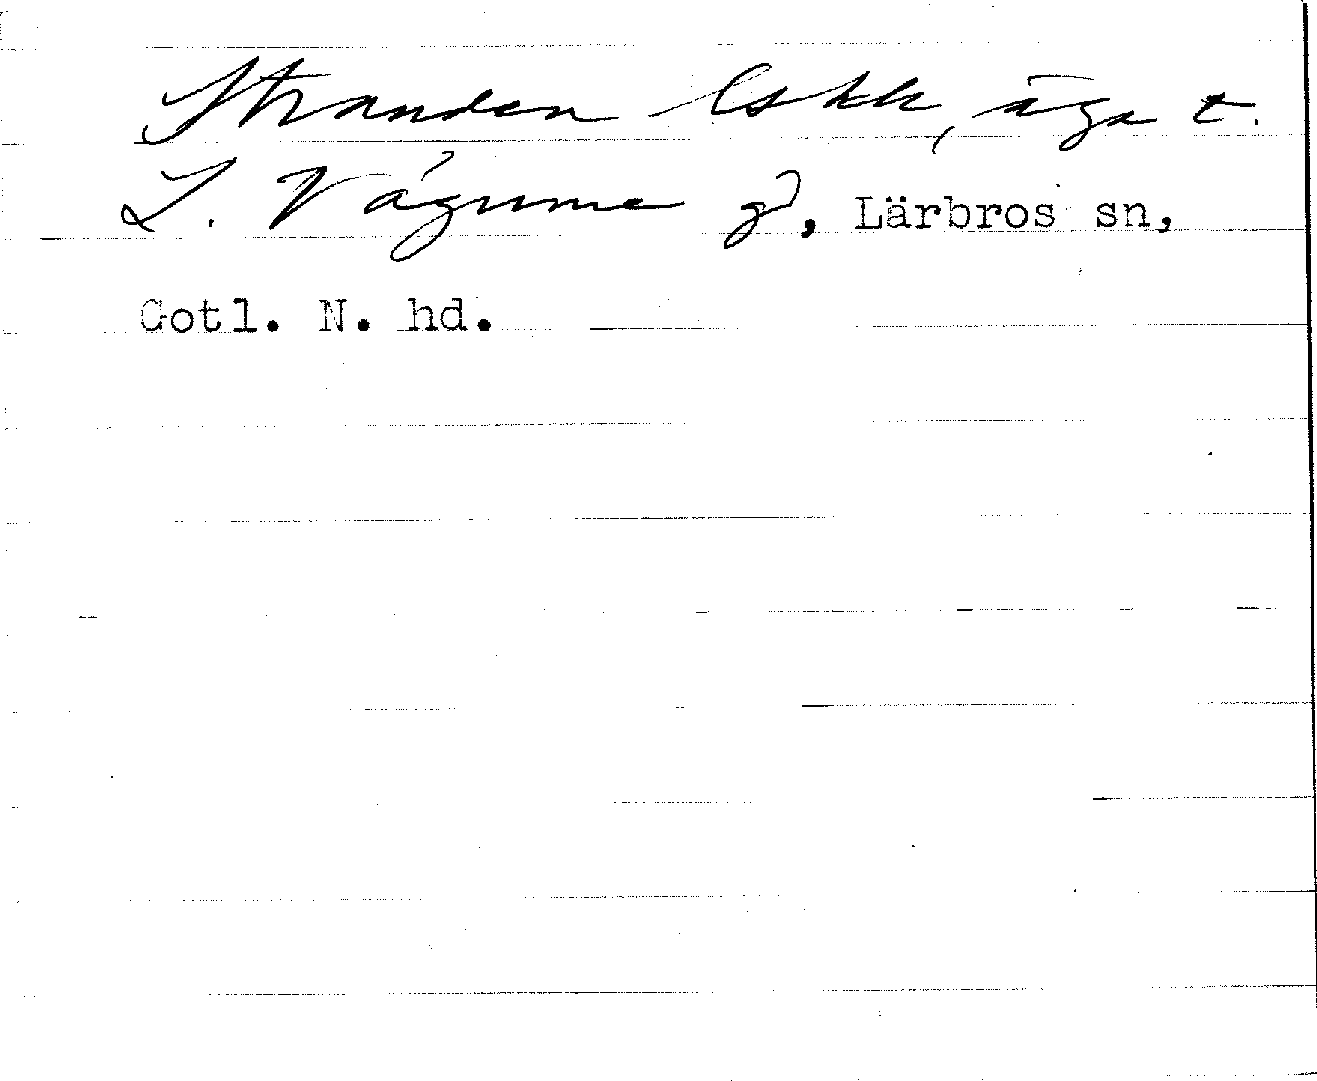 Stranden Eskk, äga t.
L. Vägume gd, Lärbros sn,
Gotl. N. hd.